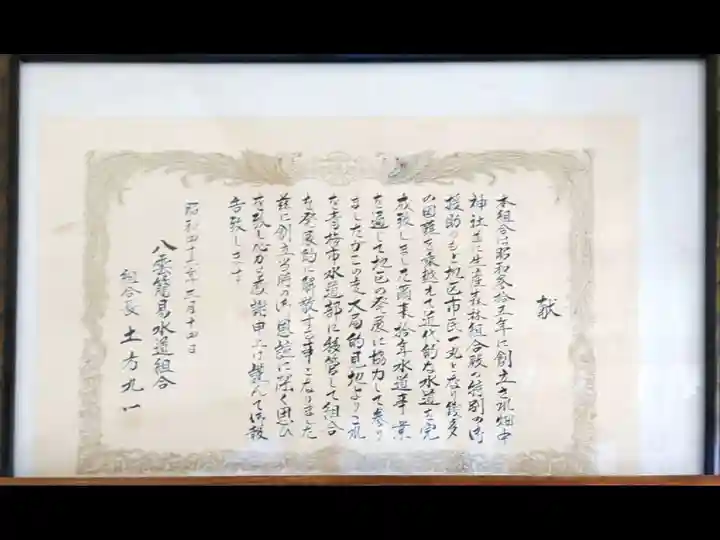 献
本組合は昭和参拾五年に創立され畑中
神社並に生産森林組合殿の特別の御
援助のもと地区市民一丸となり幾多
の困難を乗越えて近代的な水道を完
成致しました爾来拾年水道事業
を通して地区の発展に協力して参り
ましたがこの度大局的見地よりこれ
を青梅市水道部に移管して組合
を発展的に解散する事になりました
茲に創立当時の御恩誼に深く思ひ
を致し心から感謝申上げ謹んで御報
告致します
昭和四十五年三月十四日
八雲簡易水道組合
組合長 土方九一